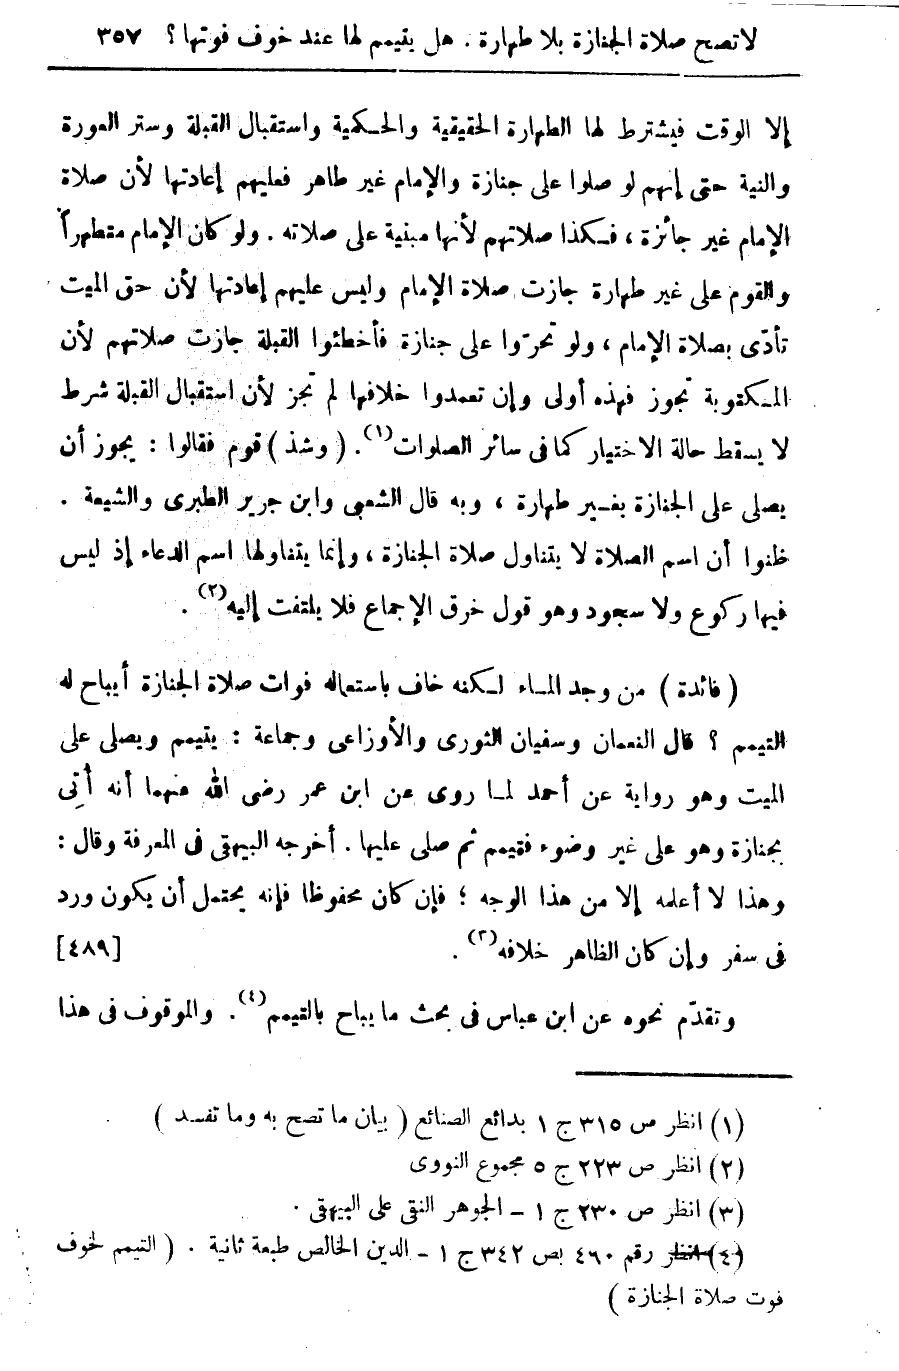 لا تصح صلاة الجنازة بلا طهارة . هل يتيمم لها عند خوف فوتها ؟ ٣٥٧
إلا الوقت فيشترط لها الطهارة الحقيقية والحكمية واستقبال القبلة وستر العورة
والنية حتى إنهم لو صلوا على جنازة والإمام غير طاهر فعليهم إعادتها لأن صلاة
الإمام غير جائزة ، فكذا صلاتهم لأنها مبنية على صلاته . ولو كان الإمام متطهراً
والقوم على غير طهارة جازت صلاة الإمام وليس عليهم إعادتها لأن حق الميت
تأدّى بصلاة الإمام ، ولو تحرّوا على جنازة فأخطئوا القبلة جازت صلاتهم لأن
المكتوبة تجوز فهذه أولى وإن تعمدوا خلافها لم تجز لأن استقبال القبلة شرط
لا يسقط حالة الاختيار كما فى سائر الصلوات(١). ( وشذ ) قوم فقالوا : يجوز أن
يصلى على الجنازة بغير طهارة ، وبه قال الشعبى وابن جرير الطبرى والشيعة .
ظنوا أن اسم الصلاة لا يتناول صلاة الجنازة ، وإنما يتناولها اسم الدعاء إذ ليس
فيها ركوع ولا سجود وهو قول خرق الإجماع فلا يلتفت إليه(٢) .
( فائدة ) من وجد الماء لكنه خاف باستعماله فوات صلاة الجنازة أيباح له
التيمم ؟ قال النعمان وسفيان الثورى والأوزاعى وجماعة : يتيمم ويصلى على
الميت وهو رواية عن أحمد لما روى عن ابن عمر رضى الله عنهما أنه أُتى
بجنازة وهو على غير وضوء فتيمم ثم صلى عليها . أخرجه البيهقى فى المعرفة وقال :
وهذا لا أعلمه إلا من هذا الوجه ؛ فإن كان محفوظا فإنه يحتمل أن يكون ورد
فى سفر وإن كان الظاهر خلافه(٣) . [٤٨٩]
وتقدّم نحوه عن ابن عباس فى بحث ما يباح بالتيمم(٤) . والموقوف فى هذا
(١) انظر ص ٣١٥ ج ١ بدائع الصنائع ( بيان ما تصح به وما تفسد )
(٢) انظر ص ٢٢٣ ج ٥ مجموع النووى
(٣) انظر ص ٢٣٠ ج ١ – الجوهر النقى على البيهقى .
(٤) انظر رقم ٤٦٠ بص ٣٤٢ ج ١ – الدين الخالص طبعة ثانية . ( التيمم لخوف
فوت صلاة الجنازة )